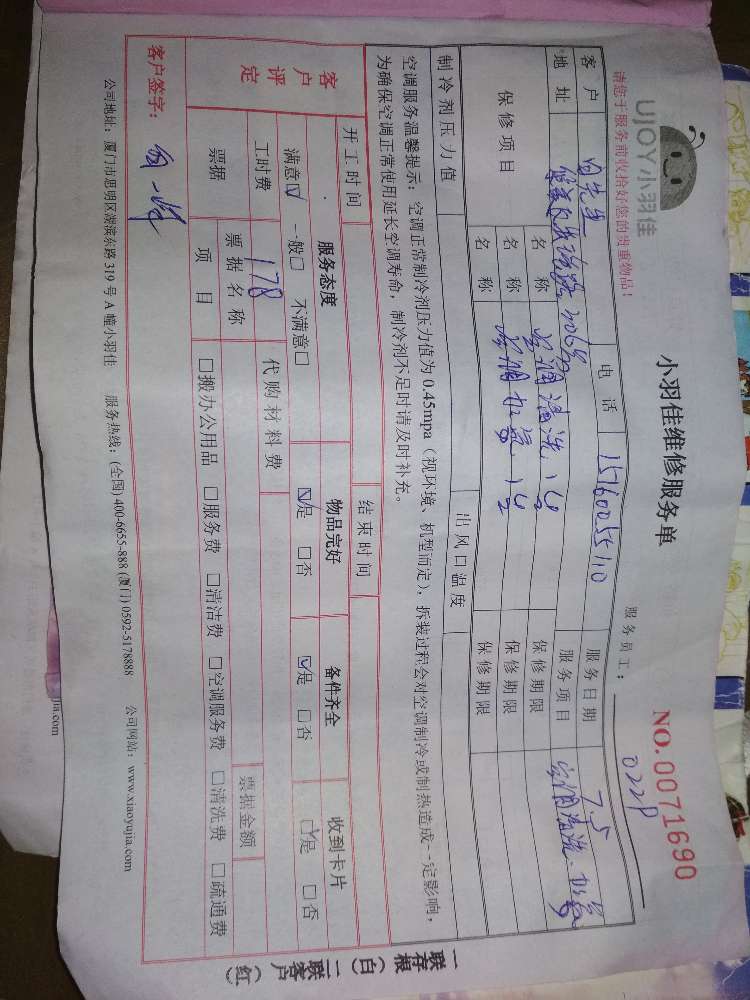 UJOY小羽佳
小羽佳维修服务单
NO. 0071690
请您于服务前收拾好您的贵重物品！
服务员工：
客户
电话 15760255110
服务日期 7.5
地址
服务项目 空调清洗、加氨
保修项目
名称 空调清洗 1台
保修期限
名称 空调加氨 1台
保修期限
名称
保修期限
制冷剂压力值
出风口温度
空调服务温馨提示：空调正常制冷剂压力值为 0.45mpa（视环境、机型而定），拆装过程会对空调制冷或制热造成一定影响，
为确保空调正常使用延长空调寿命，制冷剂不足时请及时补充。
客户评定
开工时间
结束时间
服务态度 物品完好 备件齐全 收到卡片
满意☑ 一般☐ 不满意☐ ☑是 ☐否 ☑是 ☐否 ☑是 ☐否
工时费 178 代购材料费
票据 票据名称 票据金额
项目 ☐搬办公用品 ☐服务费 ☐清洁费 ☐空调服务费 ☐清洗费 ☐疏通费
客户签字：
公司地址：厦门市思明区湖滨东路 319 号 A 幢小羽佳 服务热线：(全国) 400-6655-888 (厦门) 0592-5178888 公司网站：www.xiaoyujia.com
一联存根（白）二联客户（红）
jia.com